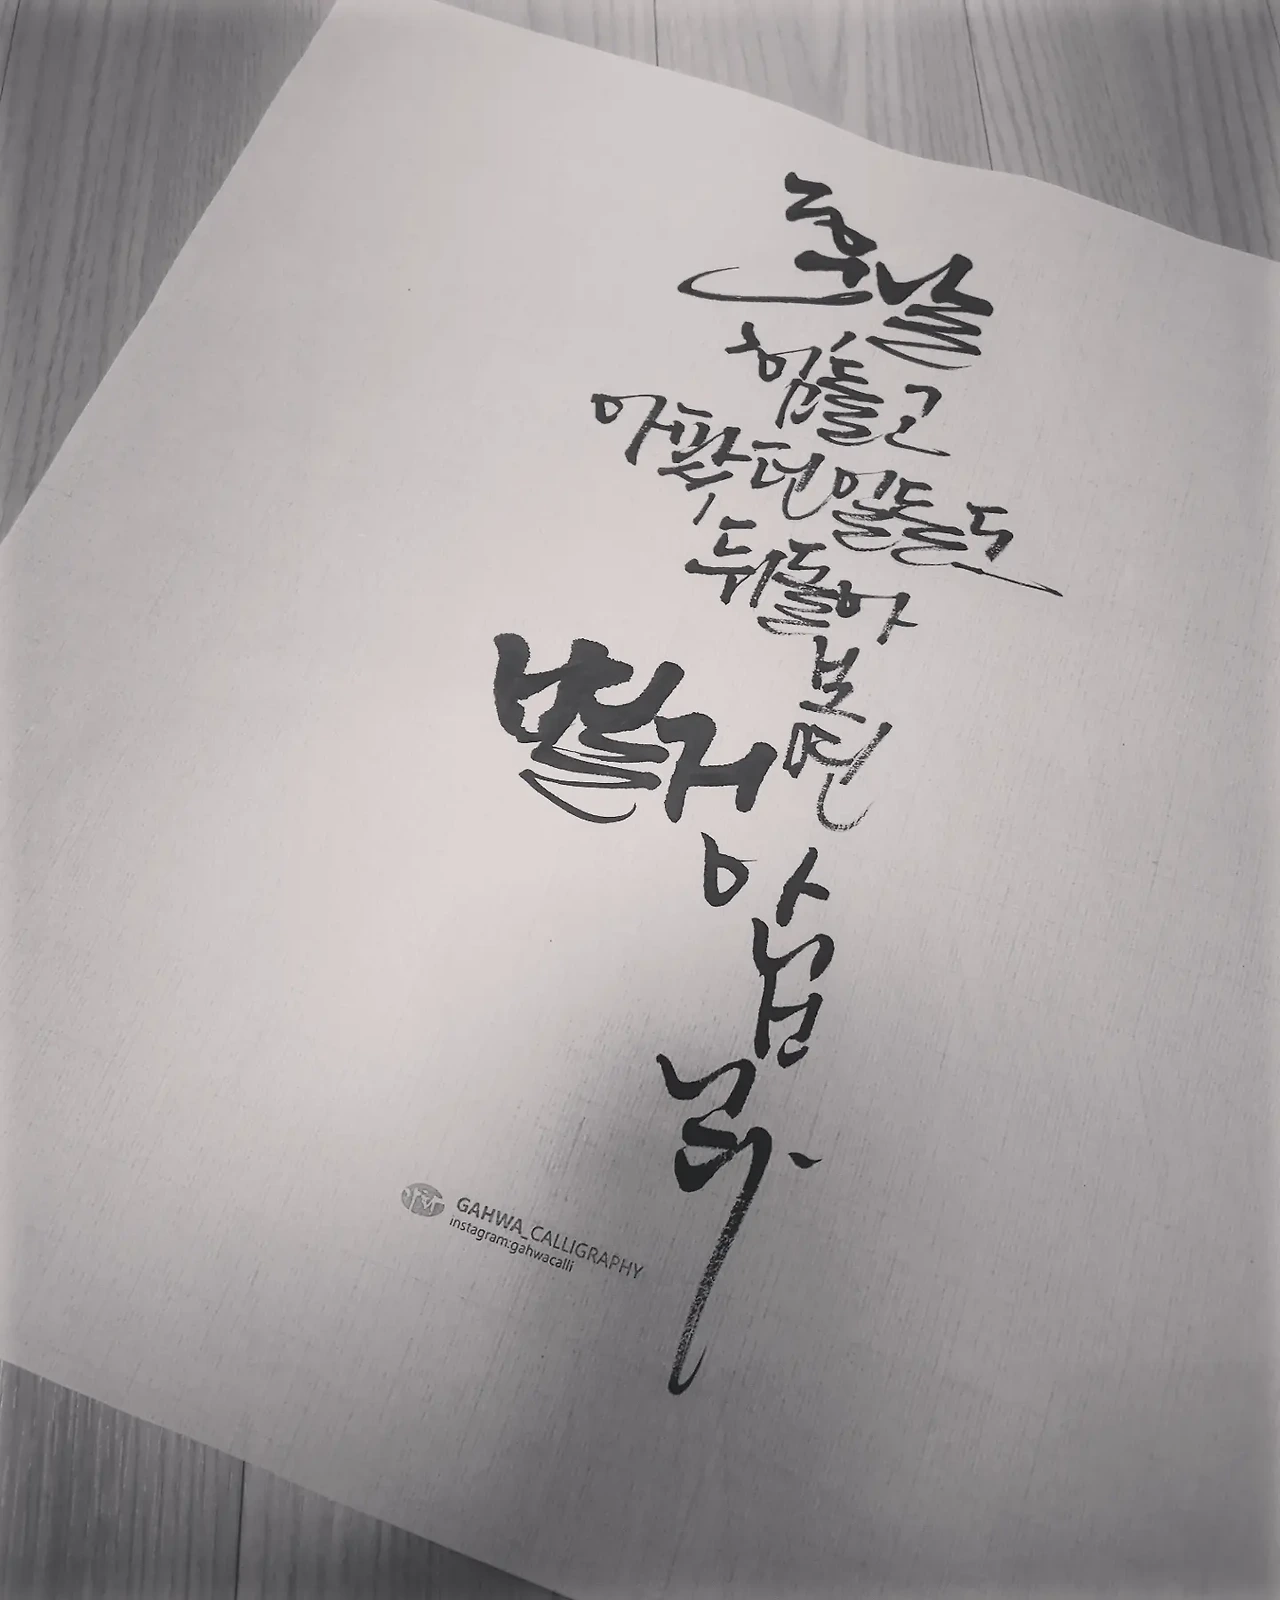 훗날
힘들고
아팠던 일들도
뒤돌아
보면
별거
아닙
니다.
GAHWA_CALLIGRAPHY
instagram:gahwacalli